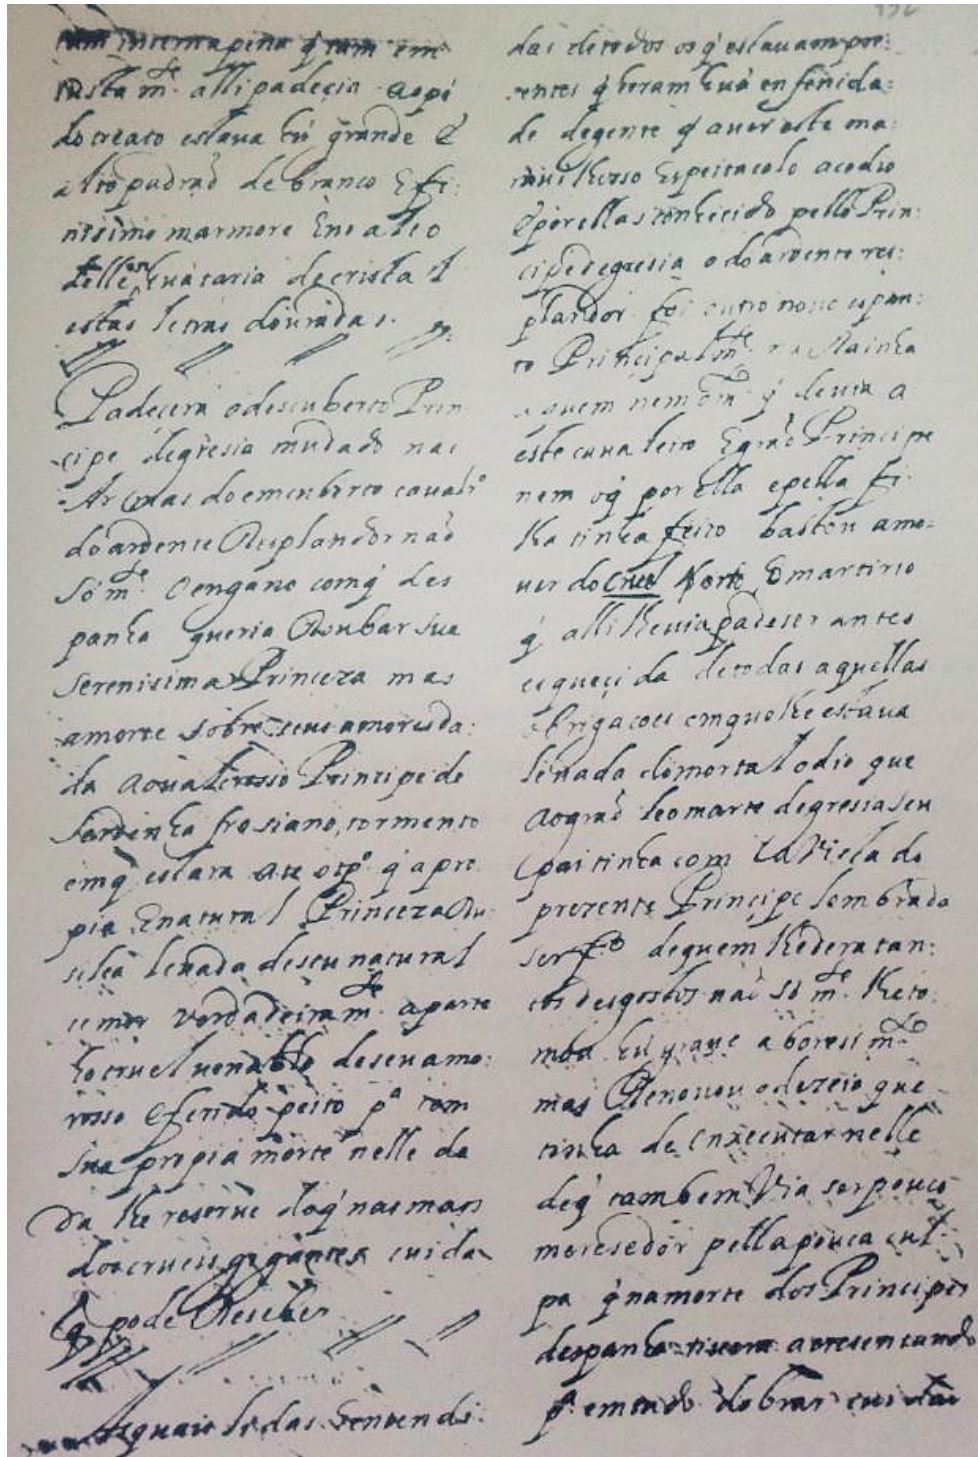 tam interna pena q̃ tam em
tasta m.te alli padecia ao pé
do teato estaua hũ grande e
alto padraõ de branco e fi:
nissimo marmore e no alto
delle em huã taria de cristal
estas letras douradas.
Padecera o descuberto Prin
cipe de gresia mudado nas
Armas do emcuberto caualr.o
do ardente Resplandor naõ
só m.te o engano com q̃ des
panha queria Roubar sua
serenisima Princeza mas
a morte sobre seus amores da:
da ao ualerosso Principe de
sardenha frosiano, tormento
em q̃ estara ate o tp.o q̃ a pro
pia e natural Princeza Ru
silea leuada de seu natural
amor verdadeiram.te aparte
o cruel uenablo de seu amo:
rosso e ferido peito p.a com
sua propia morte nelle da
da lhe reserue do q̃ nas maos
dos crueis gigantes cuida
q̃ pode Reseber
As quais lidas e entendi:
das de todos os q̃ estauam pre:
zentes q̃ heram huã enfenida:
de de gente q̃ a uer este ma:
rauilhoso espeitacolo acodio
e por ellas conhecido pello Prin:
cipe de gresia o do ardente res:
plandor foi outro nouo espan:
to Principalm.te na Rainha
a quem nem o m.to q̃ deuia a
este caualeiro e graõ Principe
nem o q̃ por ella e pella fi:
lha tinha feito bastou a mo:
uer do cruel Norte e martirio
q̃ alli lheuia padeser antes
esqueçida de todas aquellas
obrigacoes em que lhe estaua
leuada do mortal odio que
ao graõ leomarte de gresia seu
pai tinha com a Vista do
prezente Principe lembrada
ser f.o de quem lhe dera tan:
tos desgostos naõ só m.te lhe to:
mou hũ graue aboresim.to
mas Renouou o dezeio que
tinha de enxecutar nelle
de q̃ tambem Via ser pouco
meresedor pella pouca cul:
pa q̃ na morte dos Principes
despanha tiuera acresentando
p.a em tudo dobrar cuidar